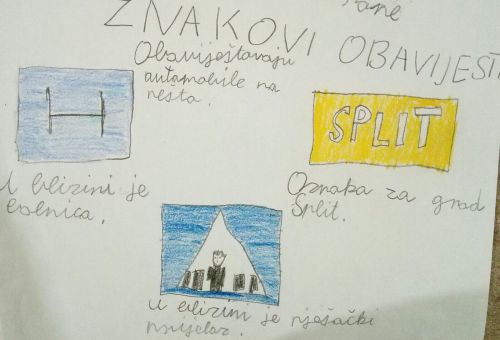 ZNAKOVI OBAVIJESTI
Obavještavaju
automobile na
nešta.
H
U blizini je
bolnica.
SPLIT
Oznaka za grad
Split.
u blizini je pješački
prijelaz.